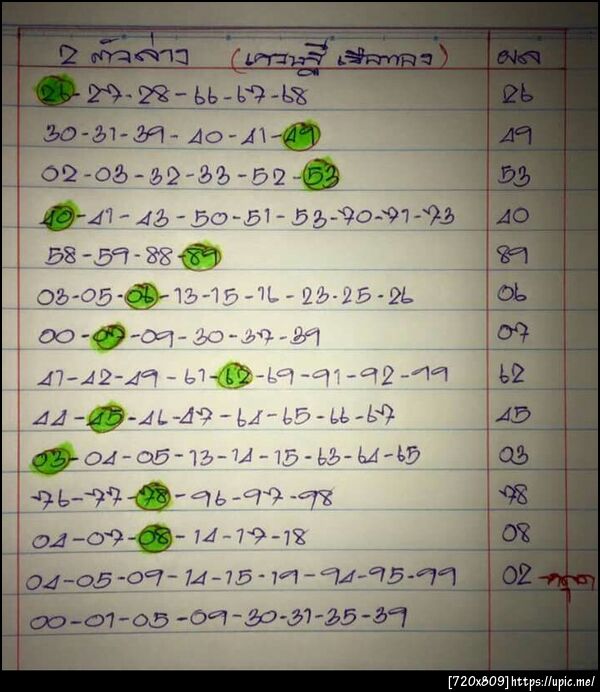 2 ตัวล่าง (เศรษฐี เรือทอง) ผล
26-27-28-66-67-68 26
30-31-39-40-41-49 49
02-03-32-33-52-53 53
40-41-43-50-51-53-70-71-73 40
58-59-88-89 89
03-05-06-13-15-16-23-25-26 06
00-07-09-30-37-39 07
41-42-49-61-62-69-91-92-99 62
44-45-46-47-64-65-66-67 45
03-04-05-13-14-15-63-64-65 03
76-77-78-96-97-98 78
04-07-08-14-17-18 08
04-05-09-14-15-19-94-95-99 02 หลุด
00-01-05-09-30-31-35-39
[720x809]https://upic.me/